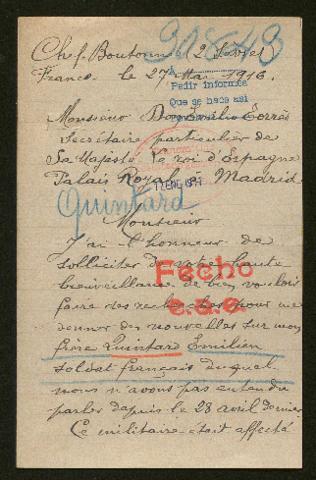 30848
Chef-Boutonne 2 Sèvres
France. le 27 Mai 1916.
Pedir informes
Que se hace así
Monsieur Don Emilio Torrès
Secrétaire particulier de
Sa Majesté le roi d'Espagne
Palais Royal à Madrid
Quintard
Monsieur
J'ai l'honneur de
solliciter de votre haute
bienveillance de bien vouloir
faire des recherches pour me
donner des nouvelles sur mon
Fecho
frère Quintard Emilien
soldat français duquel
nous n'avons pas entendu
parler depuis le 28 avril dernier
Ce militaire était affecté